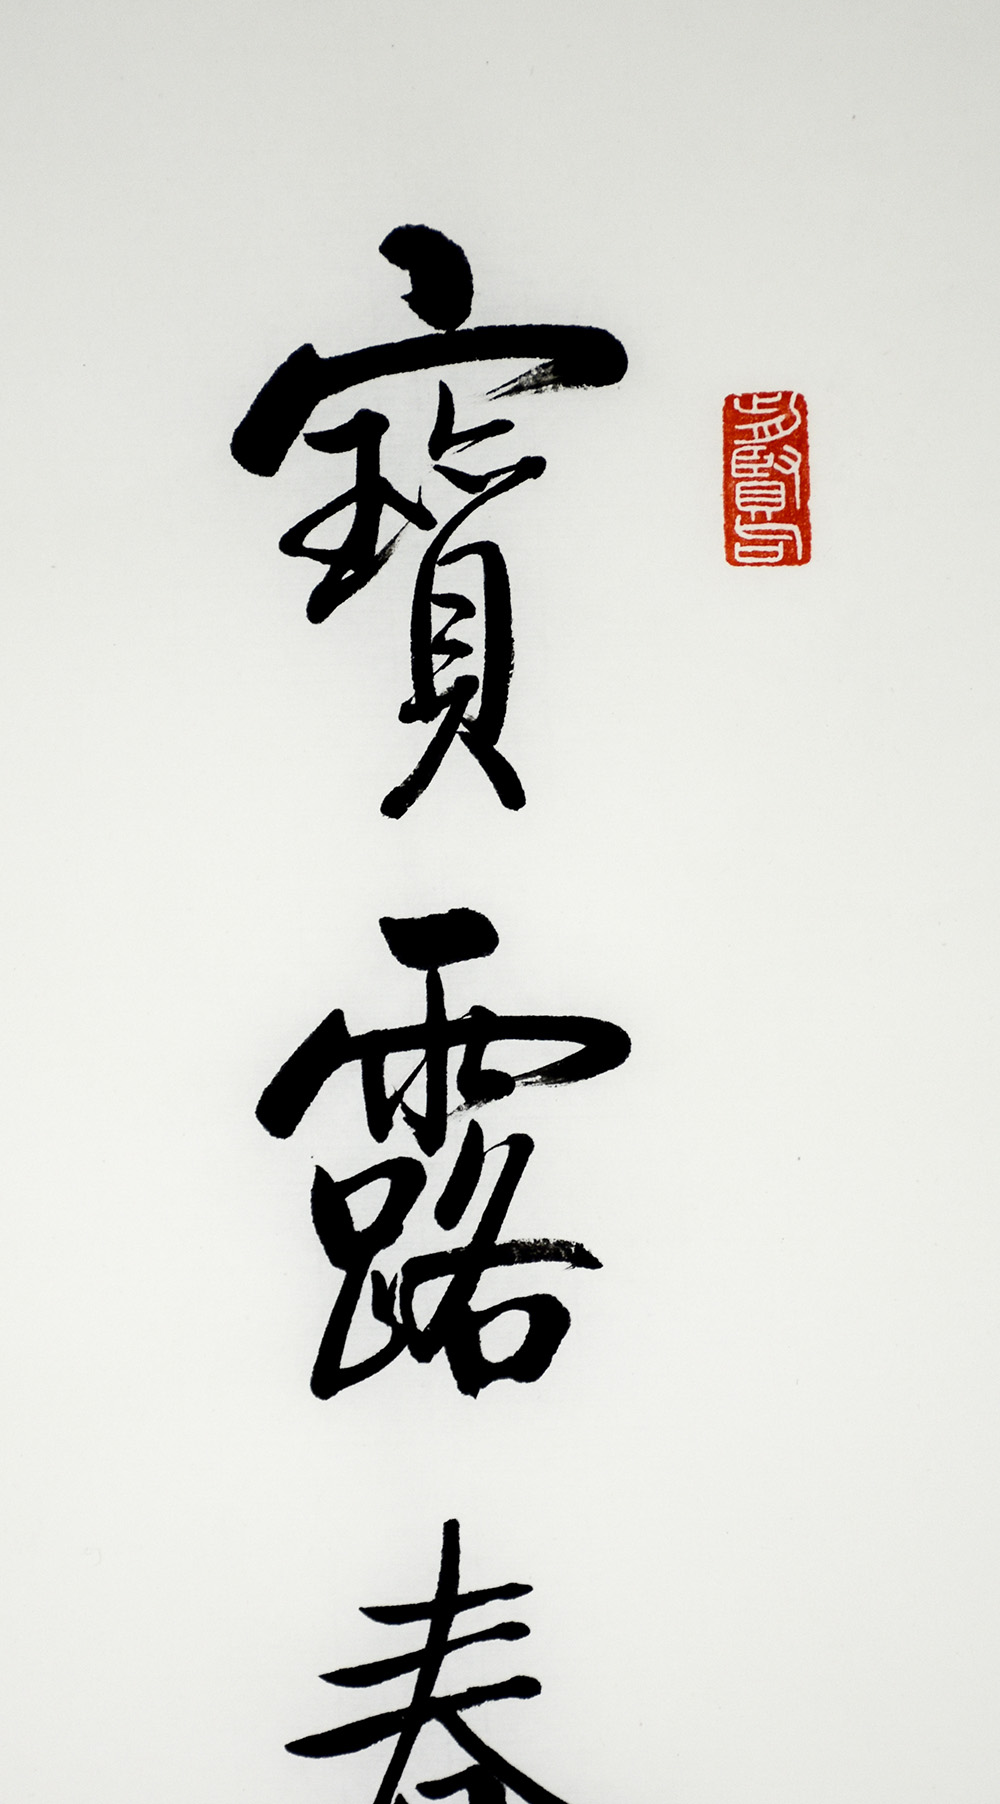 寶露春